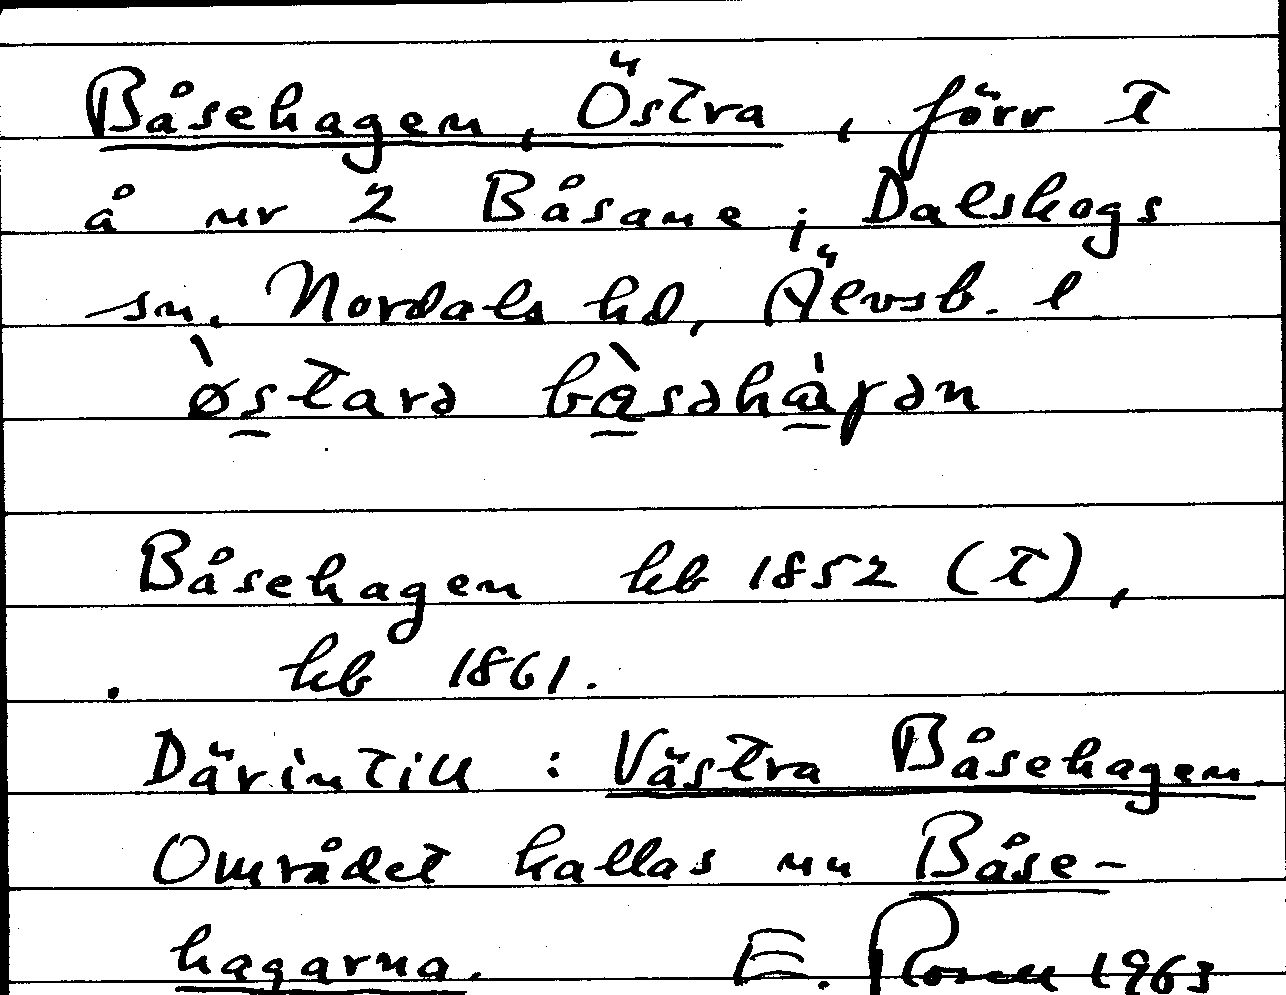 Båsehagen, Östra, förr t
å nr 2 Båsane, Dalskogs
sn. Nordals hd, Älvsb. l
ø̀starə bàsəhàɣən
Båsehagen hb 1852 (t),
. hb 1861.
Därintill: Västra Båsehagen
Området kallas nu Båse-
hagarna. E. Rosell 1963